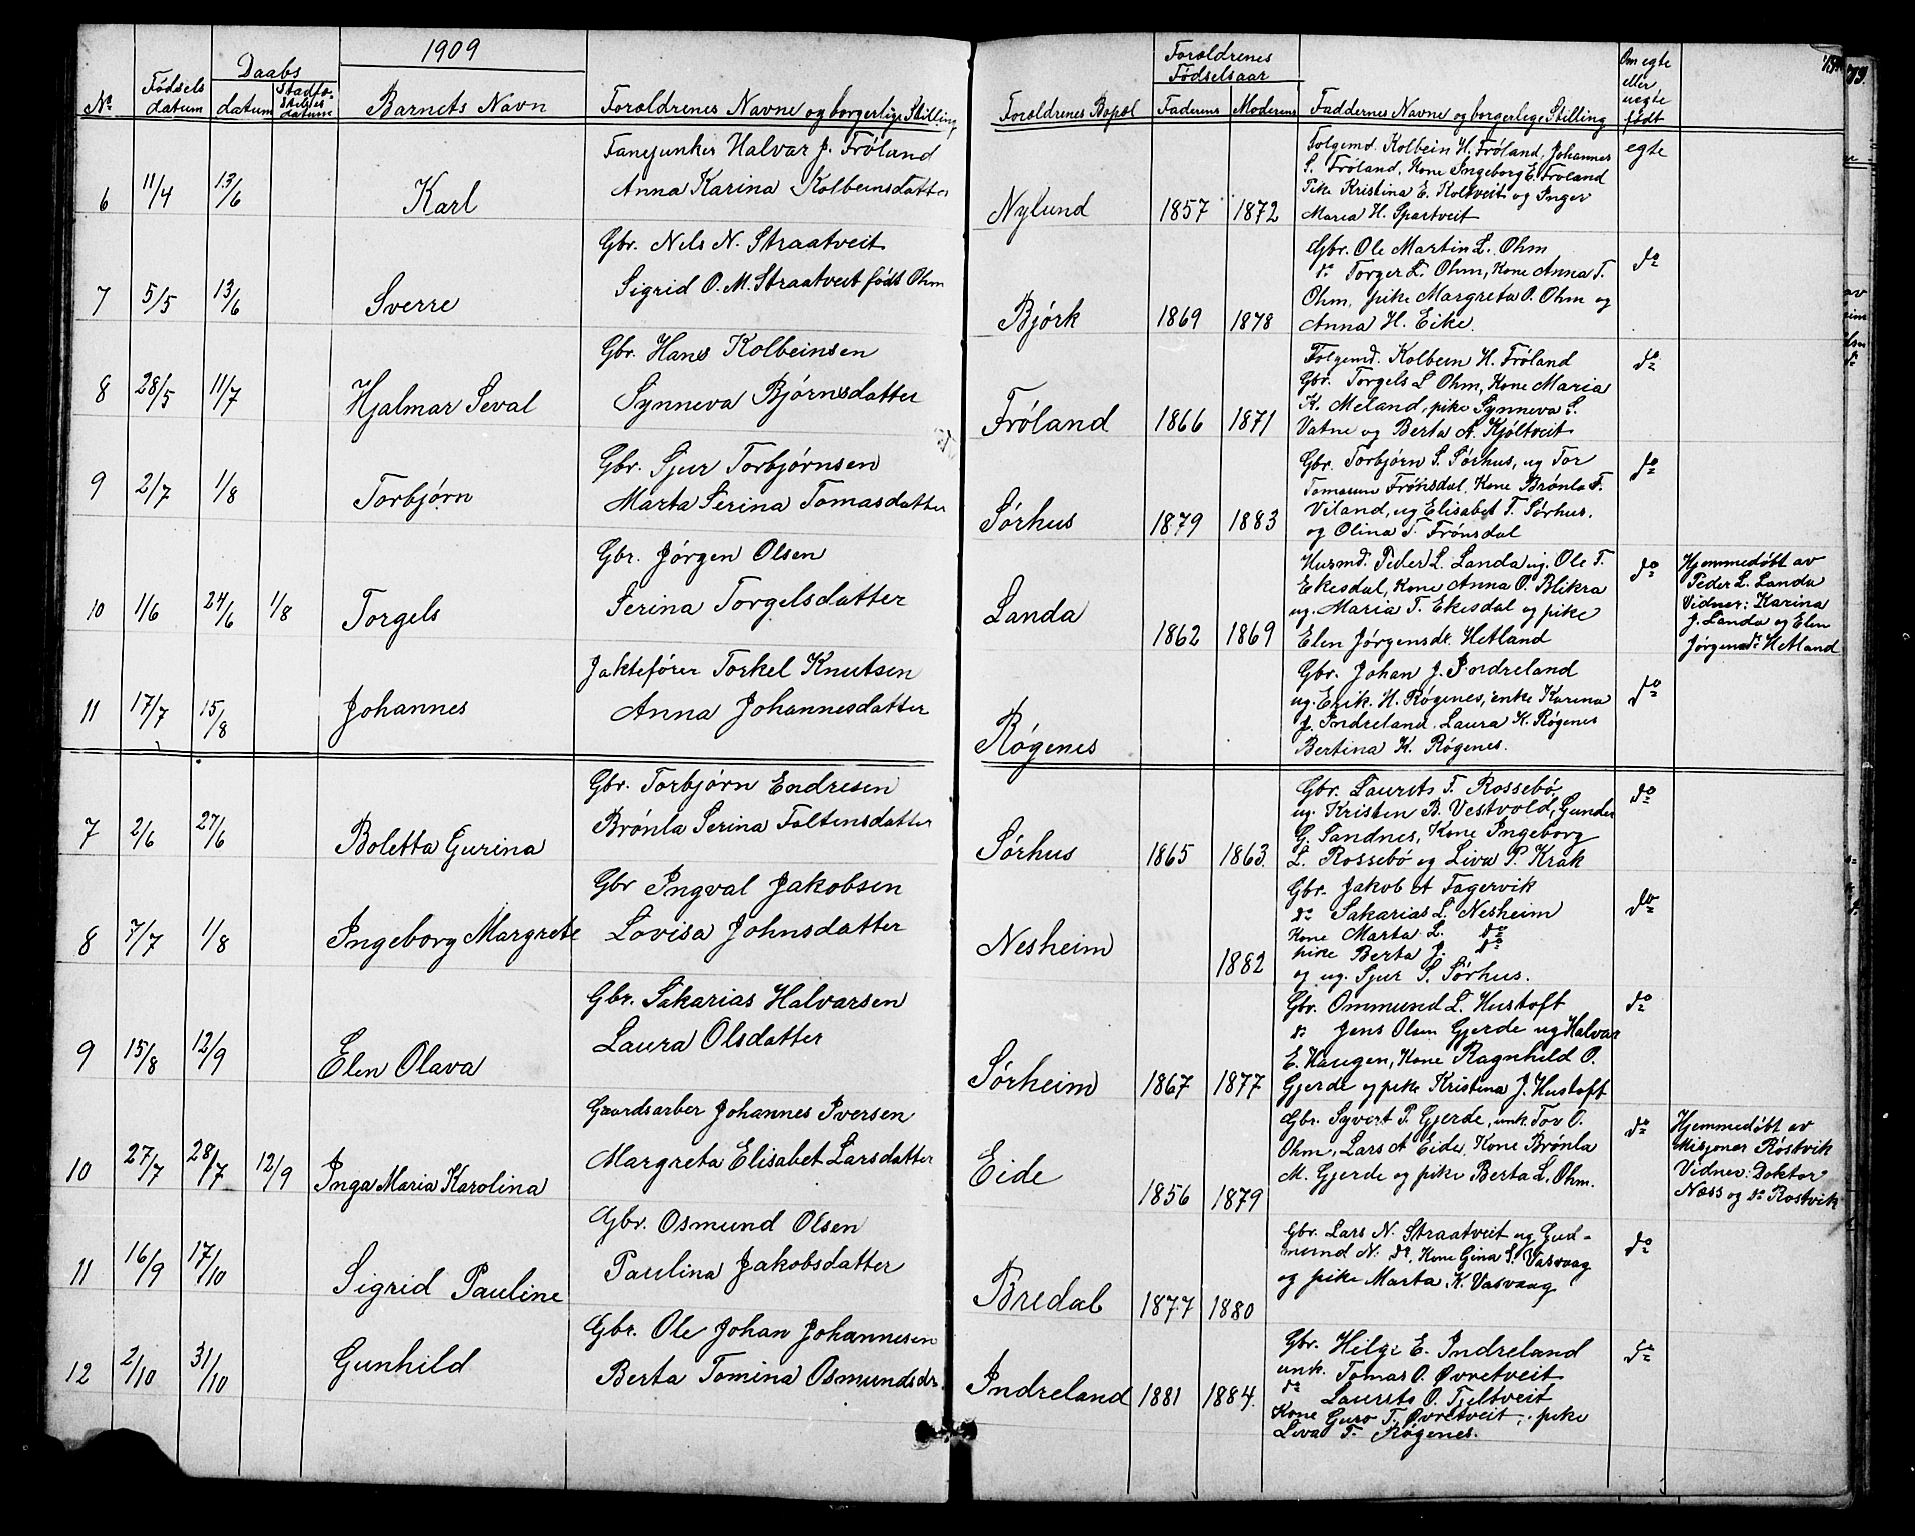 1909
Nº Fødsels datum Daabs datum Stadfæstelses datum Barnets Navn Forældrenes Navne og borgerlige Stilling Forældrenes Bopæl Forældrenes Fødselsaar Faderens Moderens Faddernes Navne og borgerlige Stilling Om egte eller uegte født
6 11/4 13/6 Karl
Fanejunker Halvar J. Frøland
Anna Karina Kolbeinsdatter
Nylund 1857 1872
Folgemd. Kolbein H. Frøland, Johannes
S. Frøland, Kone Ingeborg E. Frøland
Pike Kristina E. Koltveit og Inger
Maria H. Spartveit
egte
7 5/5 13/6 Sverre
Gbr. Nels N. Straatveit
Sigrid O. M. Straatveit født Ohm
Bjørk 1869 1878
Gbr. Ole Martin L. Ohm
do Torger L. Ohm, Kone Anna T.
Ohm, pike Margreta O. Ohm og
Anna H. Eike.
do
8 28/5 11/7 Hjalmar Seval
Gbr. Hans Kolbeinsen
Synneva Bjørnsdatter
Frøland 1866 1871
Folgemd. Kolbein H. Frøland
Gbr. Torgels L Ohm, Kone Maria
K. Meland, pike Synneva S.
Vatne og Berta A. Kjøltveit
do
9 2/7 1/8 Torbjørn
Gbr. Sjur Torbjørnsen
Marta Serina Tomasdatter
Sørhus 1879 1883
Gbr. Torbjørn S. Sørhus, ug Tor
Tomasen Frønsdal, Kone Brønla F.
Viland, ug Elisabet T. Sørhus,
og Olina T. Frønsdal
do
10 1/6 24/6 1/8 Torgels
Gbr. Jørgen Olsen
Serina Torgelsdatter
Landa 1862 1869
Husmd. Peder L. Landa ug. Ole T.
Ekesdal, Kone Anna O. Blikra
ug. Maria T. Ekesdal og pike
Elen Jørgensdr. Hetland
do
Hjemmedøbt av
Peder L. Landa
Vidner: Karina
J. Landa og Elen
Jørgensdr Hetland
11 17/7 15/8 Johannes
Jaktefører Torkel Knutsen
Anna Johannesdatter
Røgenes
Gbr. Johan J. Indreland
ug. Erik H. Røgenes, enke Karina
J. Indreland. Laura K. Røgenes
Bertina K. Røgenes.
do
7 2/6 27/6 Boletta Gurina
Gbr. Torbjørn Endresen
Brønla Serina Faltensdatter
Sørhus 1865 1863.
Gbr. Laurits T. Rossebø,
ug. Kristen B. Vestvold, Gunder
G. Sandnes, Kone Ingeborg
L. Rossebø og Liva P. Krak
do
8 7/7 1/8 Ingeborg Margrete
Gbr Ingval Jakobsen
Lovisa Johnsdatter
Nesheim 1882
Gbr. Jakob A Fagervik
do Sakarias L. Nesheim
Kone Marta L. do
pike Berta J. do
og ug. Sjur S. Sørhus.
do
9 15/8 12/9 Elen Olava
Gbr. Sakarias Halvarsen
Laura Olsdatter
Sørheim 1867 1877
Gbr. Ommund L. Hustoft
do Jens Olsen Gjerde ug Halvar
E. Haugen, Kone Ragnhild O.
Gjerde og pike Kristina J. Hustoft
do
10 27/7 28/7 12/9 Inga Maria Karolina
Gaardsarber Johannes Iversen
Margreta Elisabet Larsdatter
Eide 1856 1879
Gbr. Syvert P. Gjerde, unk. Tov O.
Ohm, Lars A Eide, Kone Brønla
M. Gjerde og pike Berta L. Ohm.
do
Hjemmedøbt av
Misjonær Røstvik
Vidner: Doktor
Næss og do Rostvik
11 16/9 17/10 Sigrid Pauline
Gbr. Osmund Olsen
Paulina Jakobsdatter
Bredal 1877 1880
Gbr. Lars N. Straatveit og Gud-
mund N. do, Kone Gina S. Vasvaag
og pike Marta K. Vasvaag
do
12 2/10 31/10 Gunhild
Gbr. Ole Johan Johannesen
Berta Tomina Osmundsdr.
Indreland 1881 1884.
Gbr. Helge E. Indreland
unk. Tomas O. Øvretveit
do Laurits O. Tjeltveit
Kone Guro T. Øvretveit, pike
Liva T. Røgenes.
do